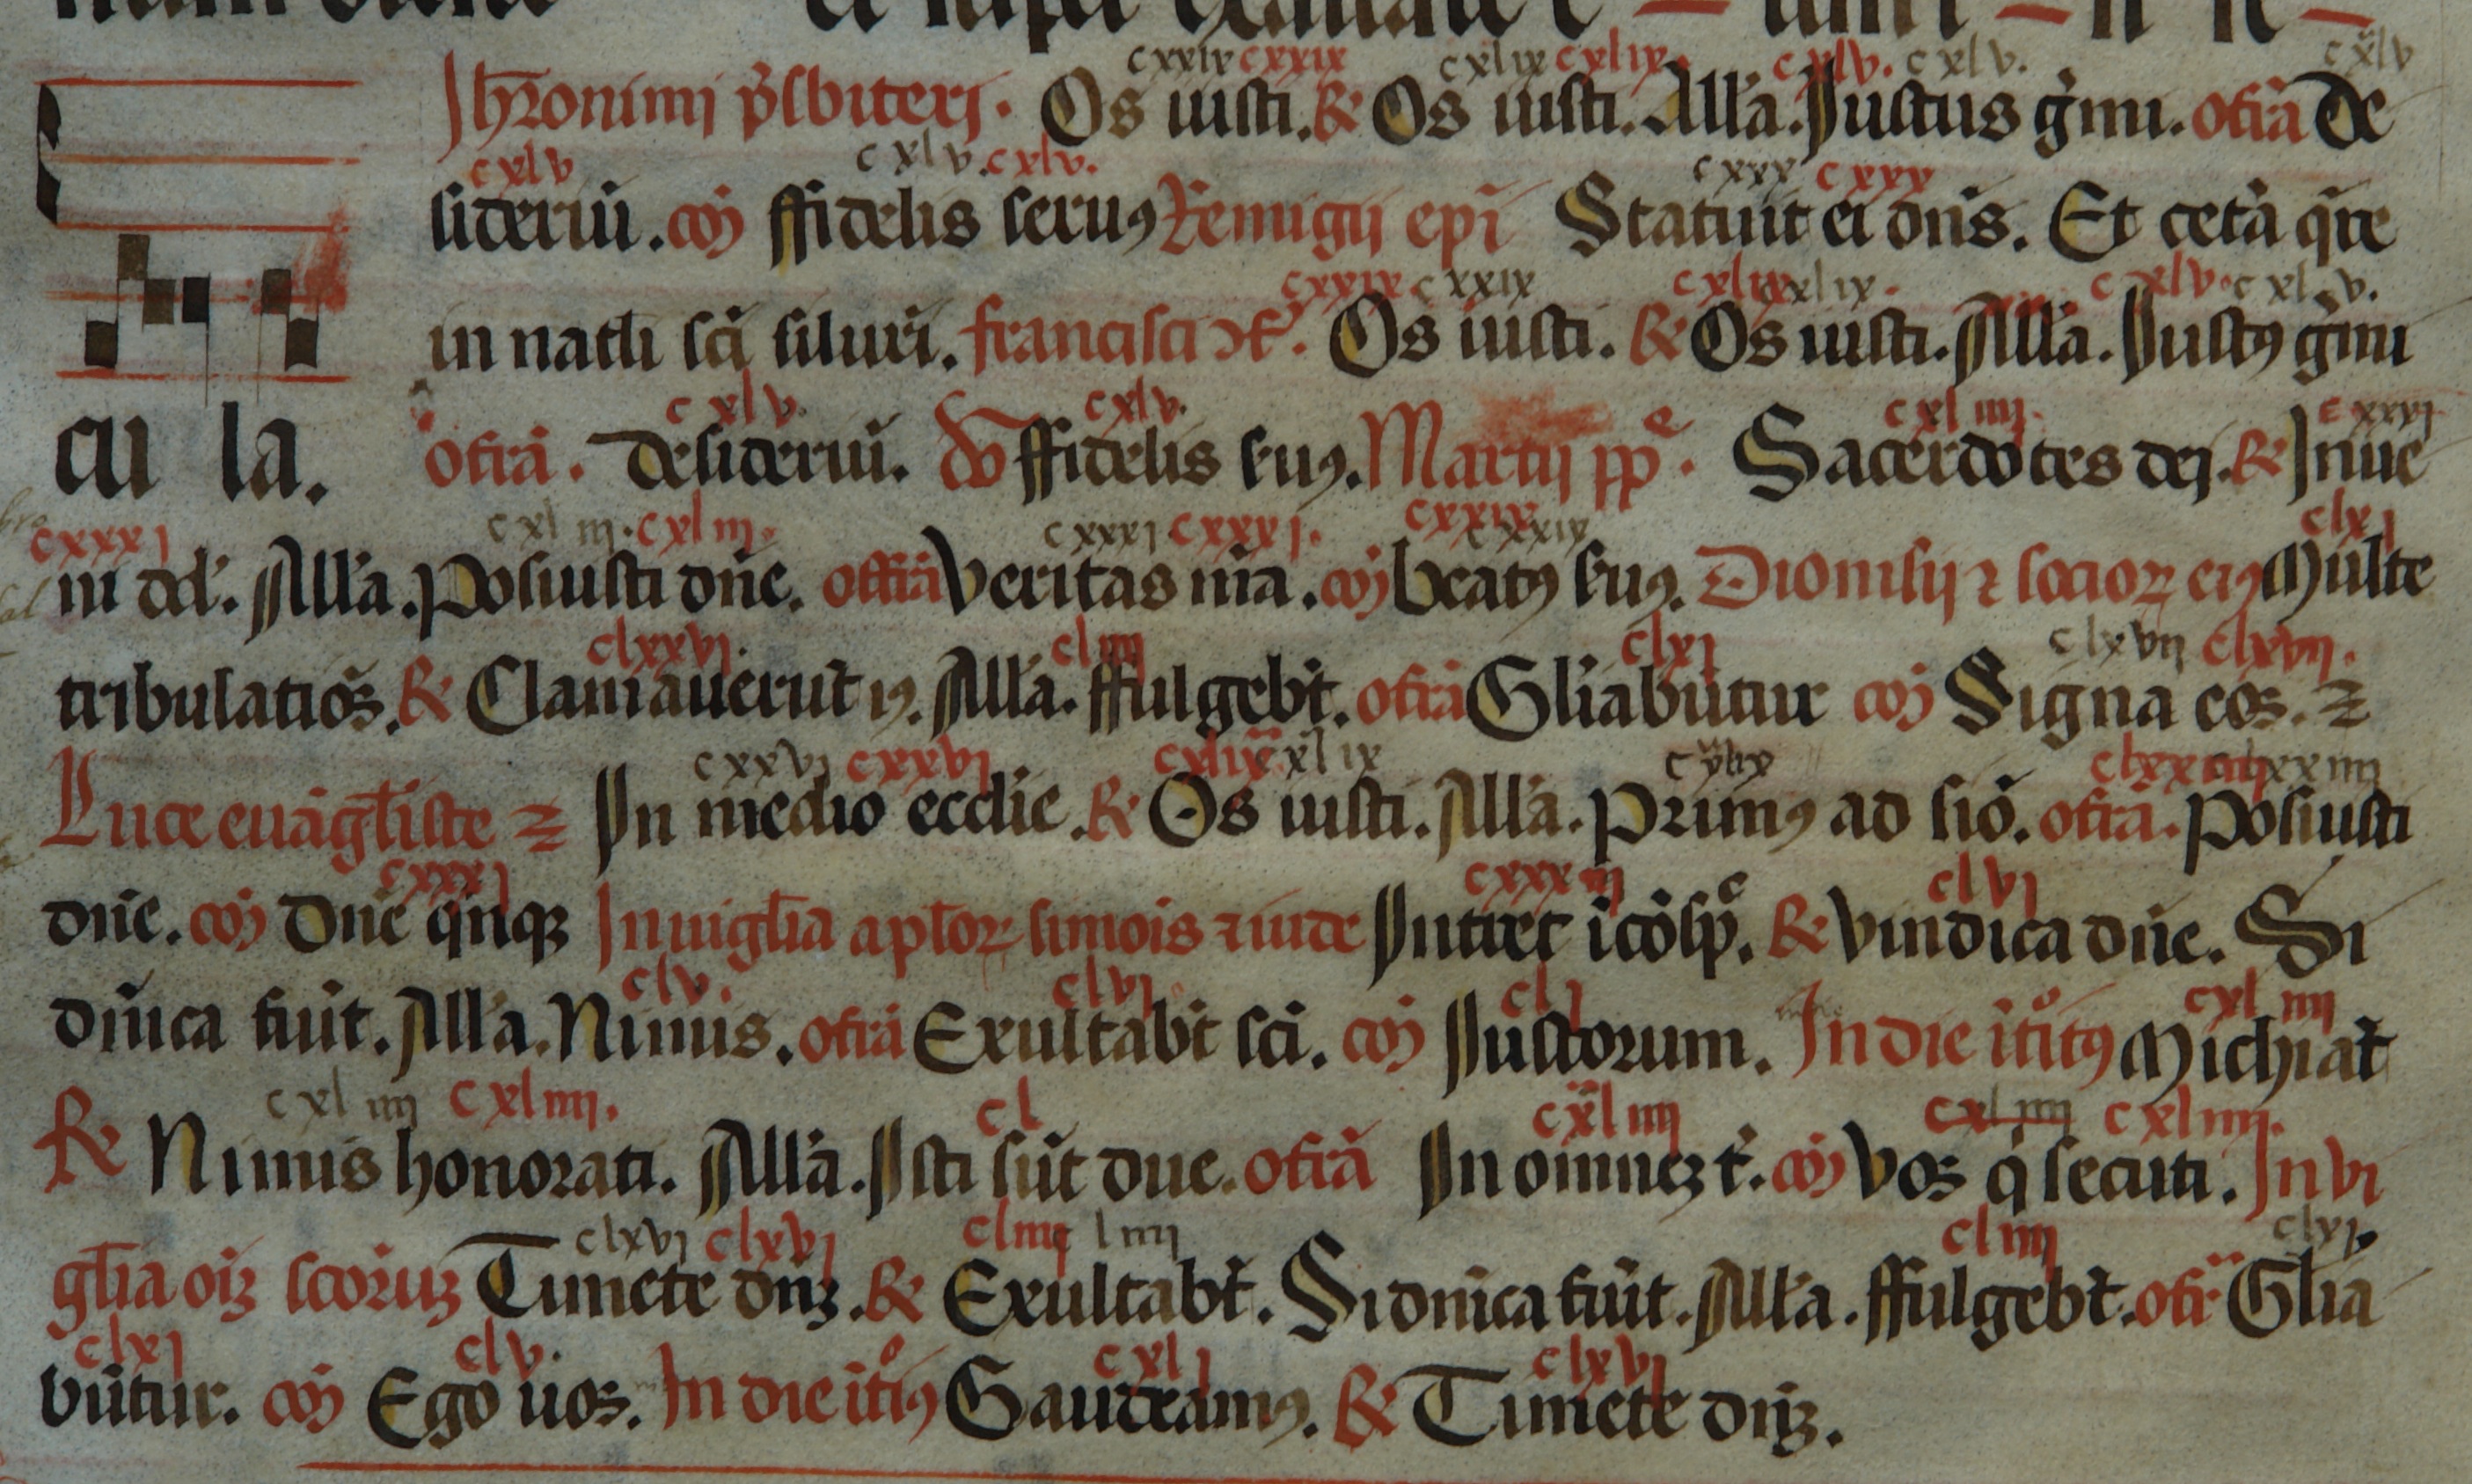 cxxix cxxix cxlix cxlix. cxlv. cxlv. cxlv
Jhr̄onimi p̄sbiteri. Os iusti. R Os iusti. All'a. Justus ġmi. ofrā De
cxlv cxlv. cxlv. cxxx cxxx
sideriū. com̄ ffidelis seruꝯ Remigii epī Statuit ei dn̄s. Et cetā q̄re
cxxix cxxix cxlix cxlix. cxlv. cxlv.
in natli sc̄i siluri. francisci ↄf. Os iusti. R Os iusti. All'a. Justꝯ ġmi
cxlv. cxlv. cxliiij. cxxxj
cu la. ofrā. desideriū. ffidelis s̄uꝯ. Martij pp̄e. Sacerdotes dej. R Jnue
cxxxj cxliij. cxliij. cxxxj cxxxj. cxxix cxxix clxj
ni dd'. All'a. Posuisti dn̄e. offrā Veritas m̄a. com̄ beatꝯ s̄uꝯ. Dionisij ⁊ socioꝝ eiꝯ Multe
clxxvj. cliiij clxj clxvij clxvij.
tribulatiōs. R Clamauerūt iꝯ. All'a. ffulgebt̄. ofrā Gl'iabūtur com̄ Signa eos. ⁊
cxxvj cxxvj cxlix cxlix clxxiiij clxxiiij
Luce euāgl'iste ⁊ In medio eccl'ie. R Os iusti. All'a. Primꝯ ad siō. ofrā. Posuisti
cxxxj cxxxiij clvj
dn̄e. com̄ Dn̄e q̄nqꝫ Jn uigl'ia apl'oꝝ simois ⁊ iude Intret i cōsp̄c. R Vindica dn̄e. Si
clv. clvj clj cxliiij
dn̄ica fuīt. All'a. Nimis. ofrā Exultabt̄ sc̄i. com̄ Justorum. Jn die it̄itꝯ Michi āt
cxliiij cxliiij. cl cxliiij cxliiij cxliiij.
R Nimis honorati. All'a. Isti sūt due. ofrā In omneꝫ t̄. com̄ Vos q̇ secuti. Jn vi
clxvj clxvj cliiij cliiij clxj.
gl'ia oīꝫ sc̄oruꝫ Timete dn̄ꝫ. R Exultabt̄. Si dn̄ica fuīt. All'a. ffulgebt̄. ofr̄ Gl'ia
clxj clv. cxlj clxvj
būtur. com̄ Ego uos. Jn die it̄iꝯ Gaudeamꝯ. R Timete dn̄ꝫ.